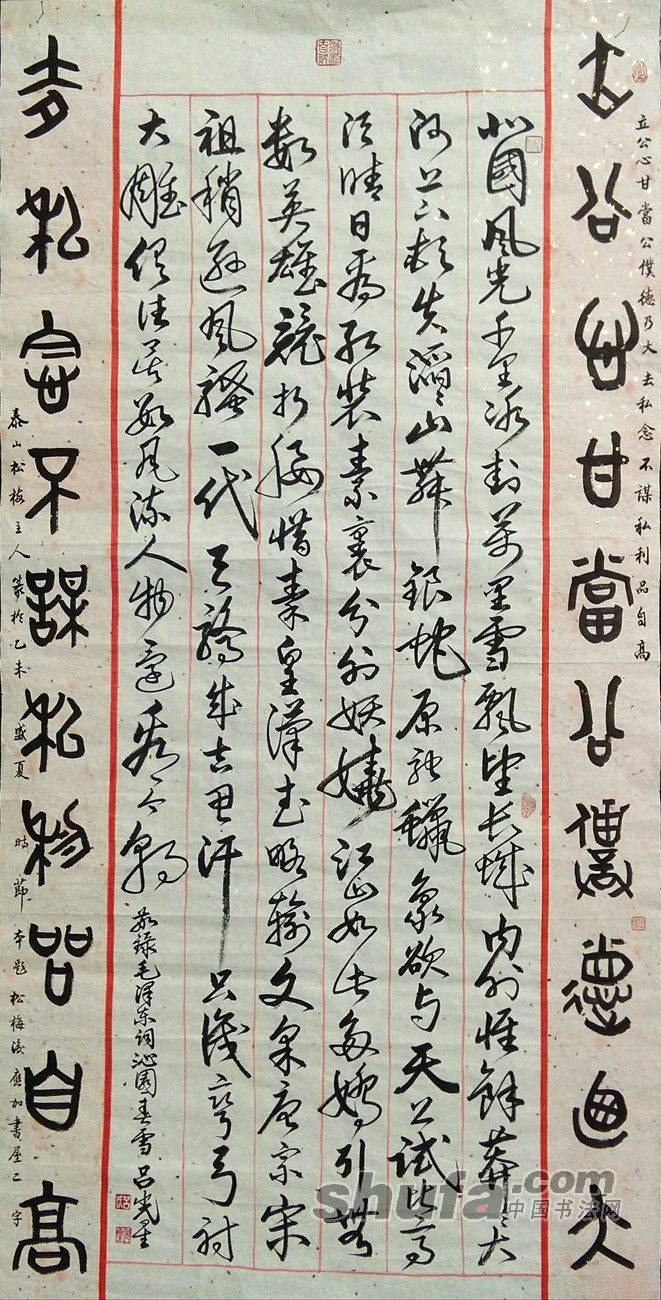 立公心甘當公僕德迺大
立公心甘當公僕德乃大去私念不謀私利品自高
北國風光千里冰封萬里雪飄望長城内外惟餘莽々大
河上下頓失滔々山舞銀蛇原馳蠟象欲与天公試比高
須晴日看紅裝素裹分外妖嬈江山如此多嬌引無
數英雄競折腰惜秦皇漢武略輸文采唐宗宋
祖稍遜風騷一代天驕成吉思汗只識彎弓射
大雕俱往矣數風流人物還看今朝
敬錄毛澤东词沁園春雪 呂光星
去私念不謀私物品自高
泰山松梅主人篆於乙未盛夏時節本題松梅後應加書屋二字
shufa.com
中国书法网